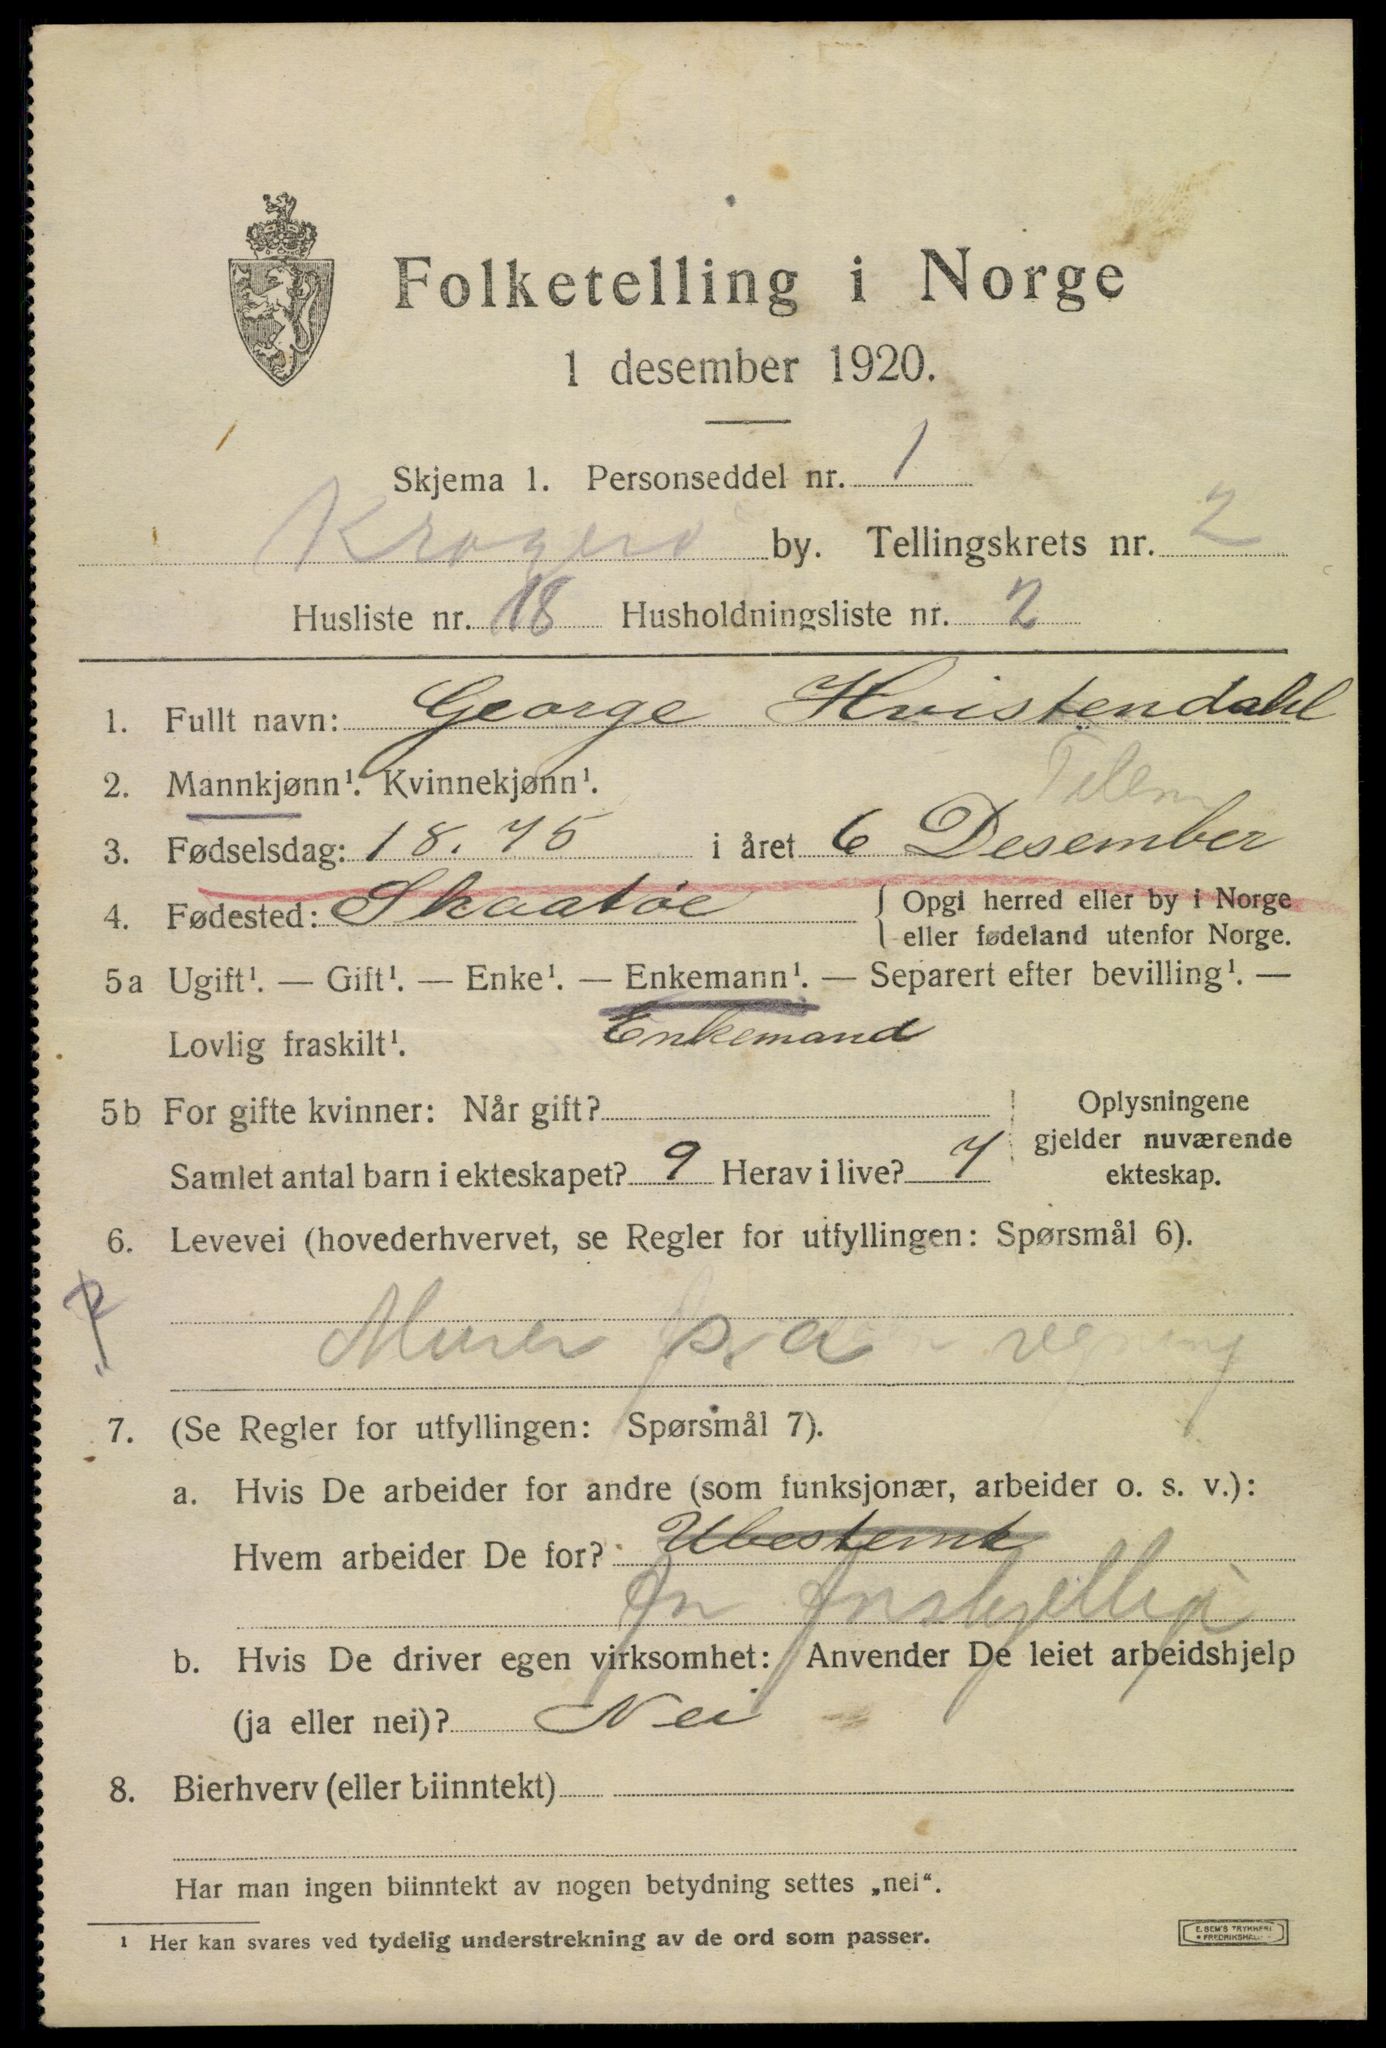 Folketelling i Norge
1 desember 1920.
Skjema 1. Personseddel nr. 1
Kragerø by. Tellingskrets nr. 2
Husliste nr. 18 Husholdningsliste nr. 2
1. Fullt navn: George Hvistendahl
2. Mannkjønn¹. Kvinnekjønn¹.
Telem
3. Fødselsdag: 18.75 i året 6 Desember
4. Fødested: Skaatøe { Opgi herred eller by i Norge
eller fødeland utenfor Norge.
5a Ugift¹. — Gift¹. — Enke¹. — Enkemann¹. — Separert efter bevilling¹. —
Lovlig fraskilt¹. Enkemand
5b For gifte kvinner: Når gift? Oplysningene
gjelder nuværende
ekteskap.
Samlet antal barn i ekteskapet? 9 Herav i live? 7
6. Levevei (hovederhvervet, se Regler for utfyllingen: Spørsmål 6).
Murer regning
7. (Se Regler for utfyllingen: Spørsmål 7).
a. Hvis De arbeider for andre (som funksjonær, arbeider o. s. v.):
Hvem arbeider De for? Ubestemt
b. Hvis De driver egen virksomhet: Anvender De leiet arbeidshjelp
(ja eller nei)? Nei
8. Bierhverv (eller biinntekt)
Har man ingen biinntekt av nogen betydning settes „nei“.
¹ Her kan svares ved tydelig understrekning av de ord som passer.
E. SEM'S TRYKKERI
FREDRIKSHALD